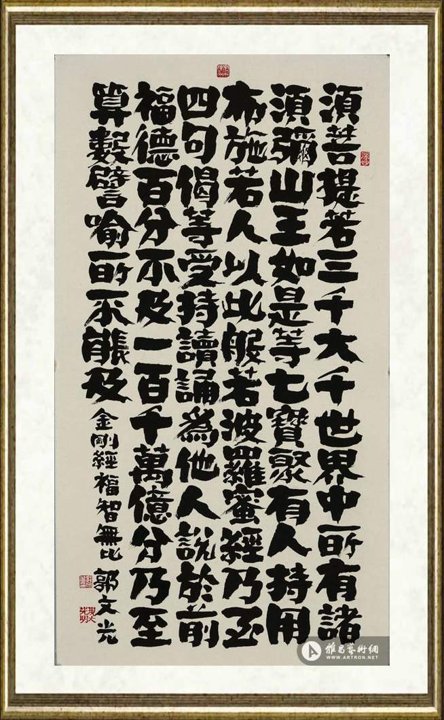 須菩提若三千大千世界中所有諸
須彌山王如是等七寶聚有人持用
布施若人以此般若波羅蜜經乃至
四句偈等受持讀誦為他人說於前
福德百分不及一百千萬億分乃至
算數譬喻所不能及 金剛經福智無比 郭文光
雅昌藝術網
WWW.ARTRON.NET